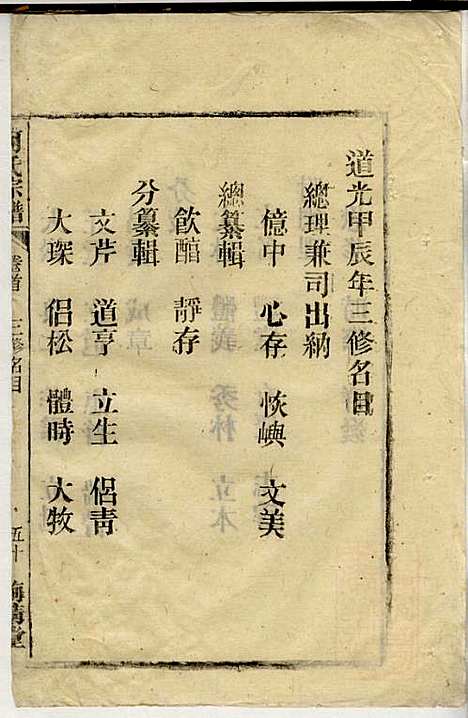 道光甲辰年三修名目
總理兼司出納
億中 心存 恢嶼 文美
總纂輯
飲醕 靜存
分纂輯
文芹 道亨 立生 侶靑
大琛 侶松 體時 大牧
氏宗譜 卷首 三修名目 五十 堂